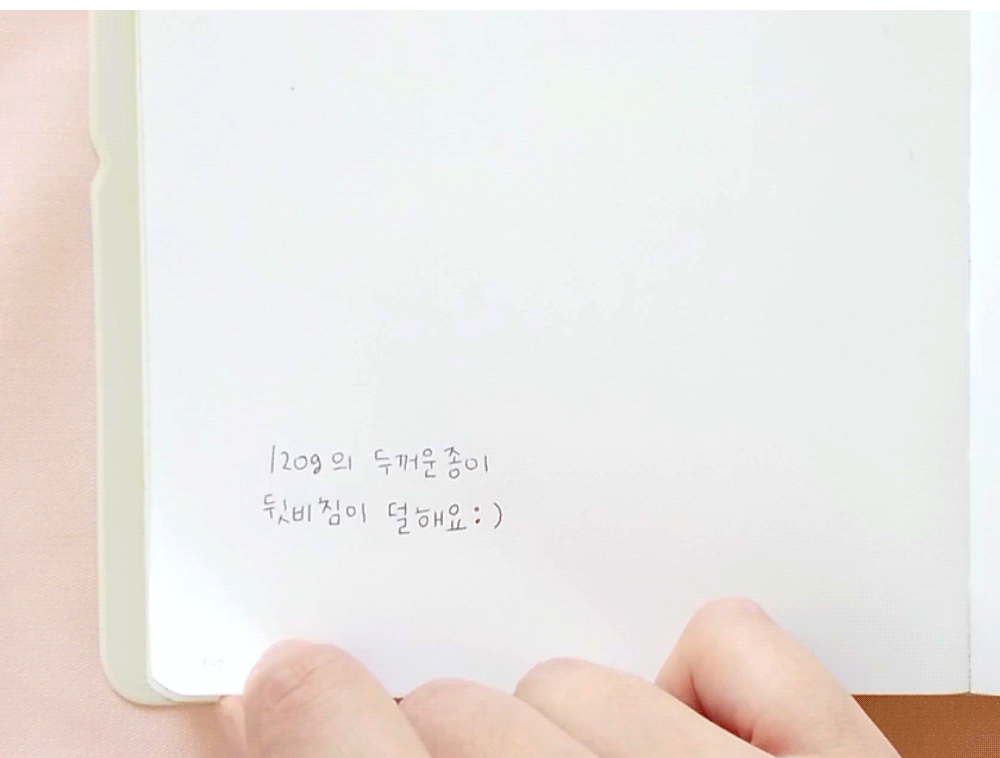 120g의 두꺼운종이
뒷비침이 덜해요:)